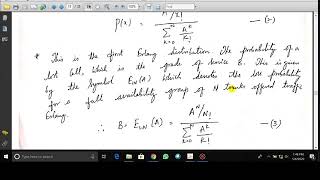 P(x) = A^x/x! / ∑ k=0 A^k/k! — (2)
* This is the first Erlang distribution. The probability of a
lost call, which is the grade of service B. This is given
by the symbol E₁,N(A) which denotes the loss probability
for a full availability group of N trunks offered traffic
Erlang.
∴ B = E₁,N(A) = A^N/N! / N ∑ k=0 A^k/k! — (3)